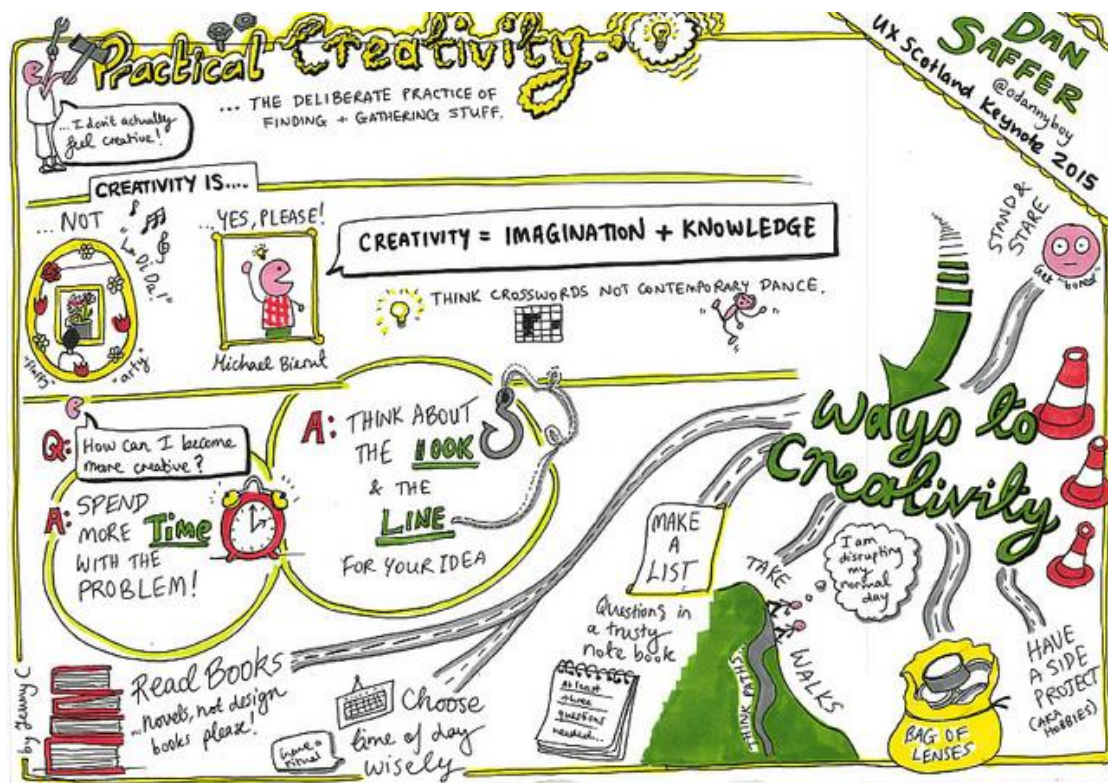 Practical Creativity.
... THE DELIBERATE PRACTICE OF
FINDING + GATHERING STUFF.
...I don't actually
feel creative!
DAN
SAFFER
@odannyboy
UX Scotland Keynote 2015
CREATIVITY IS....
... NOT
"La Di Da!"
"fluffy"
"arty"
...YES, PLEASE!
Michael Bierut
CREATIVITY = IMAGINATION + KNOWLEDGE
THINK CROSSWORDS NOT CONTEMPORARY DANCE.
Q:
How can I become
more creative?
A: SPEND
MORE Time
WITH THE
PROBLEM!
A: THINK ABOUT
THE HOOK
& THE
LINE
FOR YOUR IDEA
Ways to
Creativity
STAND &
STARE
Get "bored"
MAKE
A
LIST!
Questions in
a trusty
note book
At least
three
questions
needed...
TAKE
WALKS
THINK PATHS.
I am
disrupting
my
normal
day
BAG OF
LENSES
HAVE
A SIDE
PROJECT
(AKA
HOBBIES)
Read Books
...novels, not design
books please!
Choose
time of day
wisely
have a
ritual
by Jenny C